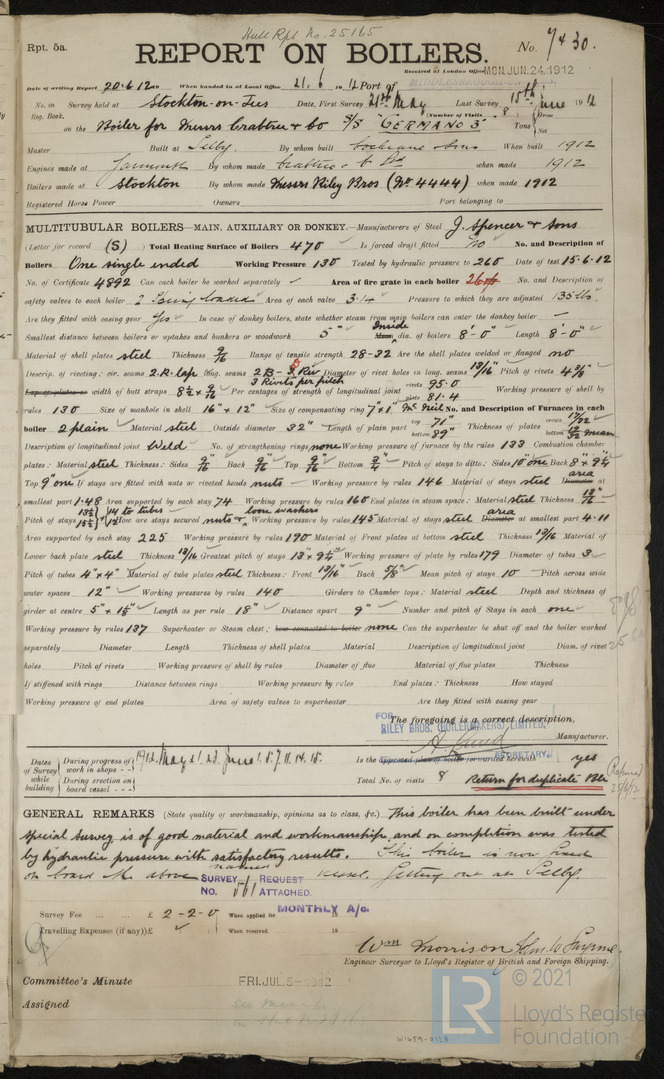 Hull Rpt. No. 25165
Rpt. 5a.
REPORT ON BOILERS.
No. 7430.
Received at London Office MON. JUN. 24. 1912
Date of writing Report 20.6.12 When handed in at Local Office 21.6.1912 Port of MIDDLESBROUGH
No. in Survey held at Stockton-on-Tees Date, First Survey 21st May Last Survey 15th June 1912
Reg. Book. (Number of Visits 8)
on the Boiler for Messrs Crabtree & Co S/S "GERMANO 3" Tons Gross Net
Master Built at Selby. By whom built Cochrane & Sons When built 1912
Engines made at Yarmouth By whom made Crabtree & Co Ltd when made 1912
Boilers made at Stockton By whom made Messrs Riley Bros (No 4444) when made 1912
Registered Horse Power Owners Port belonging to
MULTITUBULAR BOILERS—MAIN, AUXILIARY OR DONKEY.—Manufacturers of Steel J. Spencer & Sons
(Letter for record (S)) Total Heating Surface of Boilers 470 Is forced draft fitted no No. and Description of
Boilers One single ended Working Pressure 130 Tested by hydraulic pressure to 260 Date of test 15.6.12
No. of Certificate 4892 Can each boiler be worked separately Area of fire grate in each boiler No. and Description of
safety valves to each boiler 2 Spring loaded Area of each valve 3.14 Pressure to which they are adjusted 135 lbs
Are they fitted with easing gear Yes In case of donkey boilers, state whether steam from main boilers can enter the donkey boiler —
Smallest distance between boilers or uptakes and bunkers or woodwork 5" Inside dia. of boilers 8'-0" Length 8'-0"
Material of shell plates steel Thickness 9/16 Range of tensile strength 28-32 Are the shell plates welded or flanged no
Descrip. of riveting: cir. seams 2.R. Lap long. seams 2 B - 3 Riv Diameter of rivet holes in long. seams 13/16 Pitch of rivets 4 3/8"
3 Rivets per pitch
Lap of plates or width of butt straps 8 1/2 x 9/16 Per centages of strength of longitudinal joint rivets 95.0 plate 81.4 Working pressure of shell by
rules 130 Size of manhole in shell 16" x 12" Size of compensating ring 7" x 1" McNeil No. and Description of Furnaces in each
boiler 2 plain Material steel Outside diameter 32" Length of plain part top 71" bottom 89" Thickness of plates crown bottom
Description of longitudinal joint Weld No. of strengthening rings none Working pressure of furnace by the rules 133 Combustion chamber
plates: Material steel Thickness: Sides 9/16 Back 9/16 Top 9/16 Bottom 3/4 Pitch of stays to ditto: Sides 10" one Back 8" x 9 1/4
Top 9" one If stays are fitted with nuts or riveted heads nuts Working pressure by rules 146 Material of stays steel area Diameter at
smallest part 1.48 Area supported by each stay 74 Working pressure by rules 160 End plates in steam space: Material steel Thickness 13/16
Pitch of stays 14 to tubes How are stays secured nuts & loose washers Working pressure by rules 145 Material of stays steel area Diameter at smallest part 4.11
Area supported by each stay 225 Working pressure by rules 190 Material of Front plates at bottom steel Thickness 13/16 Material of
Lower back plate steel Thickness 13/16 Greatest pitch of stays 13" x 9 1/4" Working pressure of plate by rules 179 Diameter of tubes 3
Pitch of tubes 4" x 4" Material of tube plates steel Thickness: Front 13/16 Back 5/8" Mean pitch of stays 10 Pitch across wide
water spaces 12" Working pressures by rules 140 Girders to Chamber tops: Material steel Depth and thickness of
girder at centre 5" x 1 1/2" Length as per rule 18" Distance apart 9" Number and pitch of Stays in each one
Working pressure by rules 137 Superheater or Steam chest; how connected to boiler none Can the superheater be shut off and the boiler worked
separately Diameter Length Thickness of shell plates Material Description of longitudinal joint Diam. of rivet
holes Pitch of rivets Working pressure of shell by rules Diameter of flue Material of flue plates Thickness
If stiffened with rings Distance between rings Working pressure by rules End plates: Thickness How stayed
Working pressure of end plates Area of safety valves to superheater Are they fitted with easing gear
The foregoing is a correct description,
FOR RILEY BROS. (BOILERMAKERS) LIMITED,
Manufacturer.
SECRETARY.
Dates of Survey while building
During progress of work in shops - - 1912. May 21. 23. June 1. 5. 7. 11. 14. 15.
During erection on board vessel - - -
Is the approved plan of boiler forwarded herewith yes
Total No. of visits 8 Return for duplicate Blr
GENERAL REMARKS (State quality of workmanship, opinions as to class, &c.) This boiler has been built under
special survey is of good material and workmanship, and on completion was tested
by hydraulic pressure with satisfactory results. This boiler is now fixed
on board the above named vessel. Fitting out at Selby.
SURVEY REQUEST
NO. 561 ATTACHED.
Survey Fee ... ... £ 2-2-0 When applied for MONTHLY A/c. 19
Travelling Expenses (if any) £ When received, 19
Wm Morrison
Engineer Surveyor to Lloyd's Register of British and Foreign Shipping.
Committee's Minute FRI. JUL. 5-1912
Assigned
W1659-0123
© 2021
LR
Lloyd's Register
Foundation